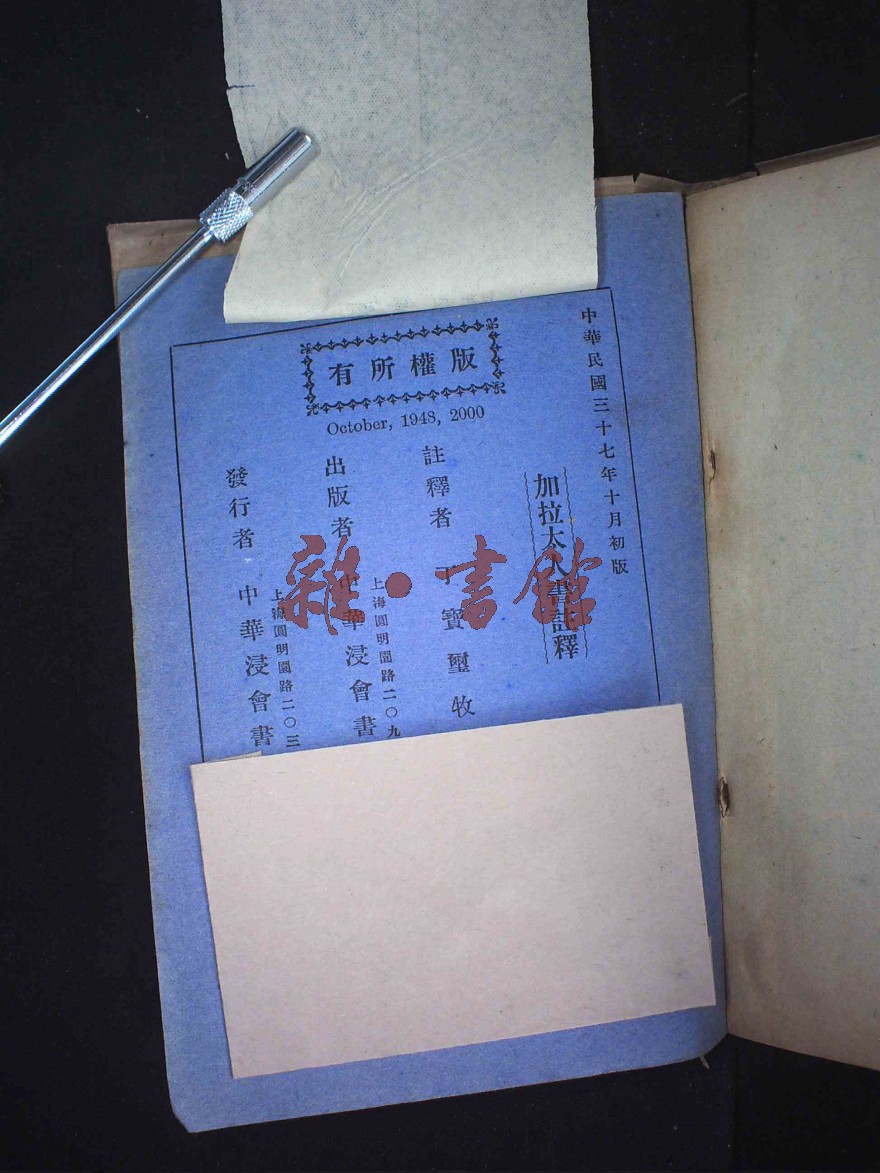 中華民國三十七年十月初版
版權所有
October, 1948, 2000
加拉太人書註釋
註釋者　寶璽牧
出版者　中華浸會書
上海圓明園路二〇九
發行者　中華浸會書
上海圓明園路二〇三
雜·書館